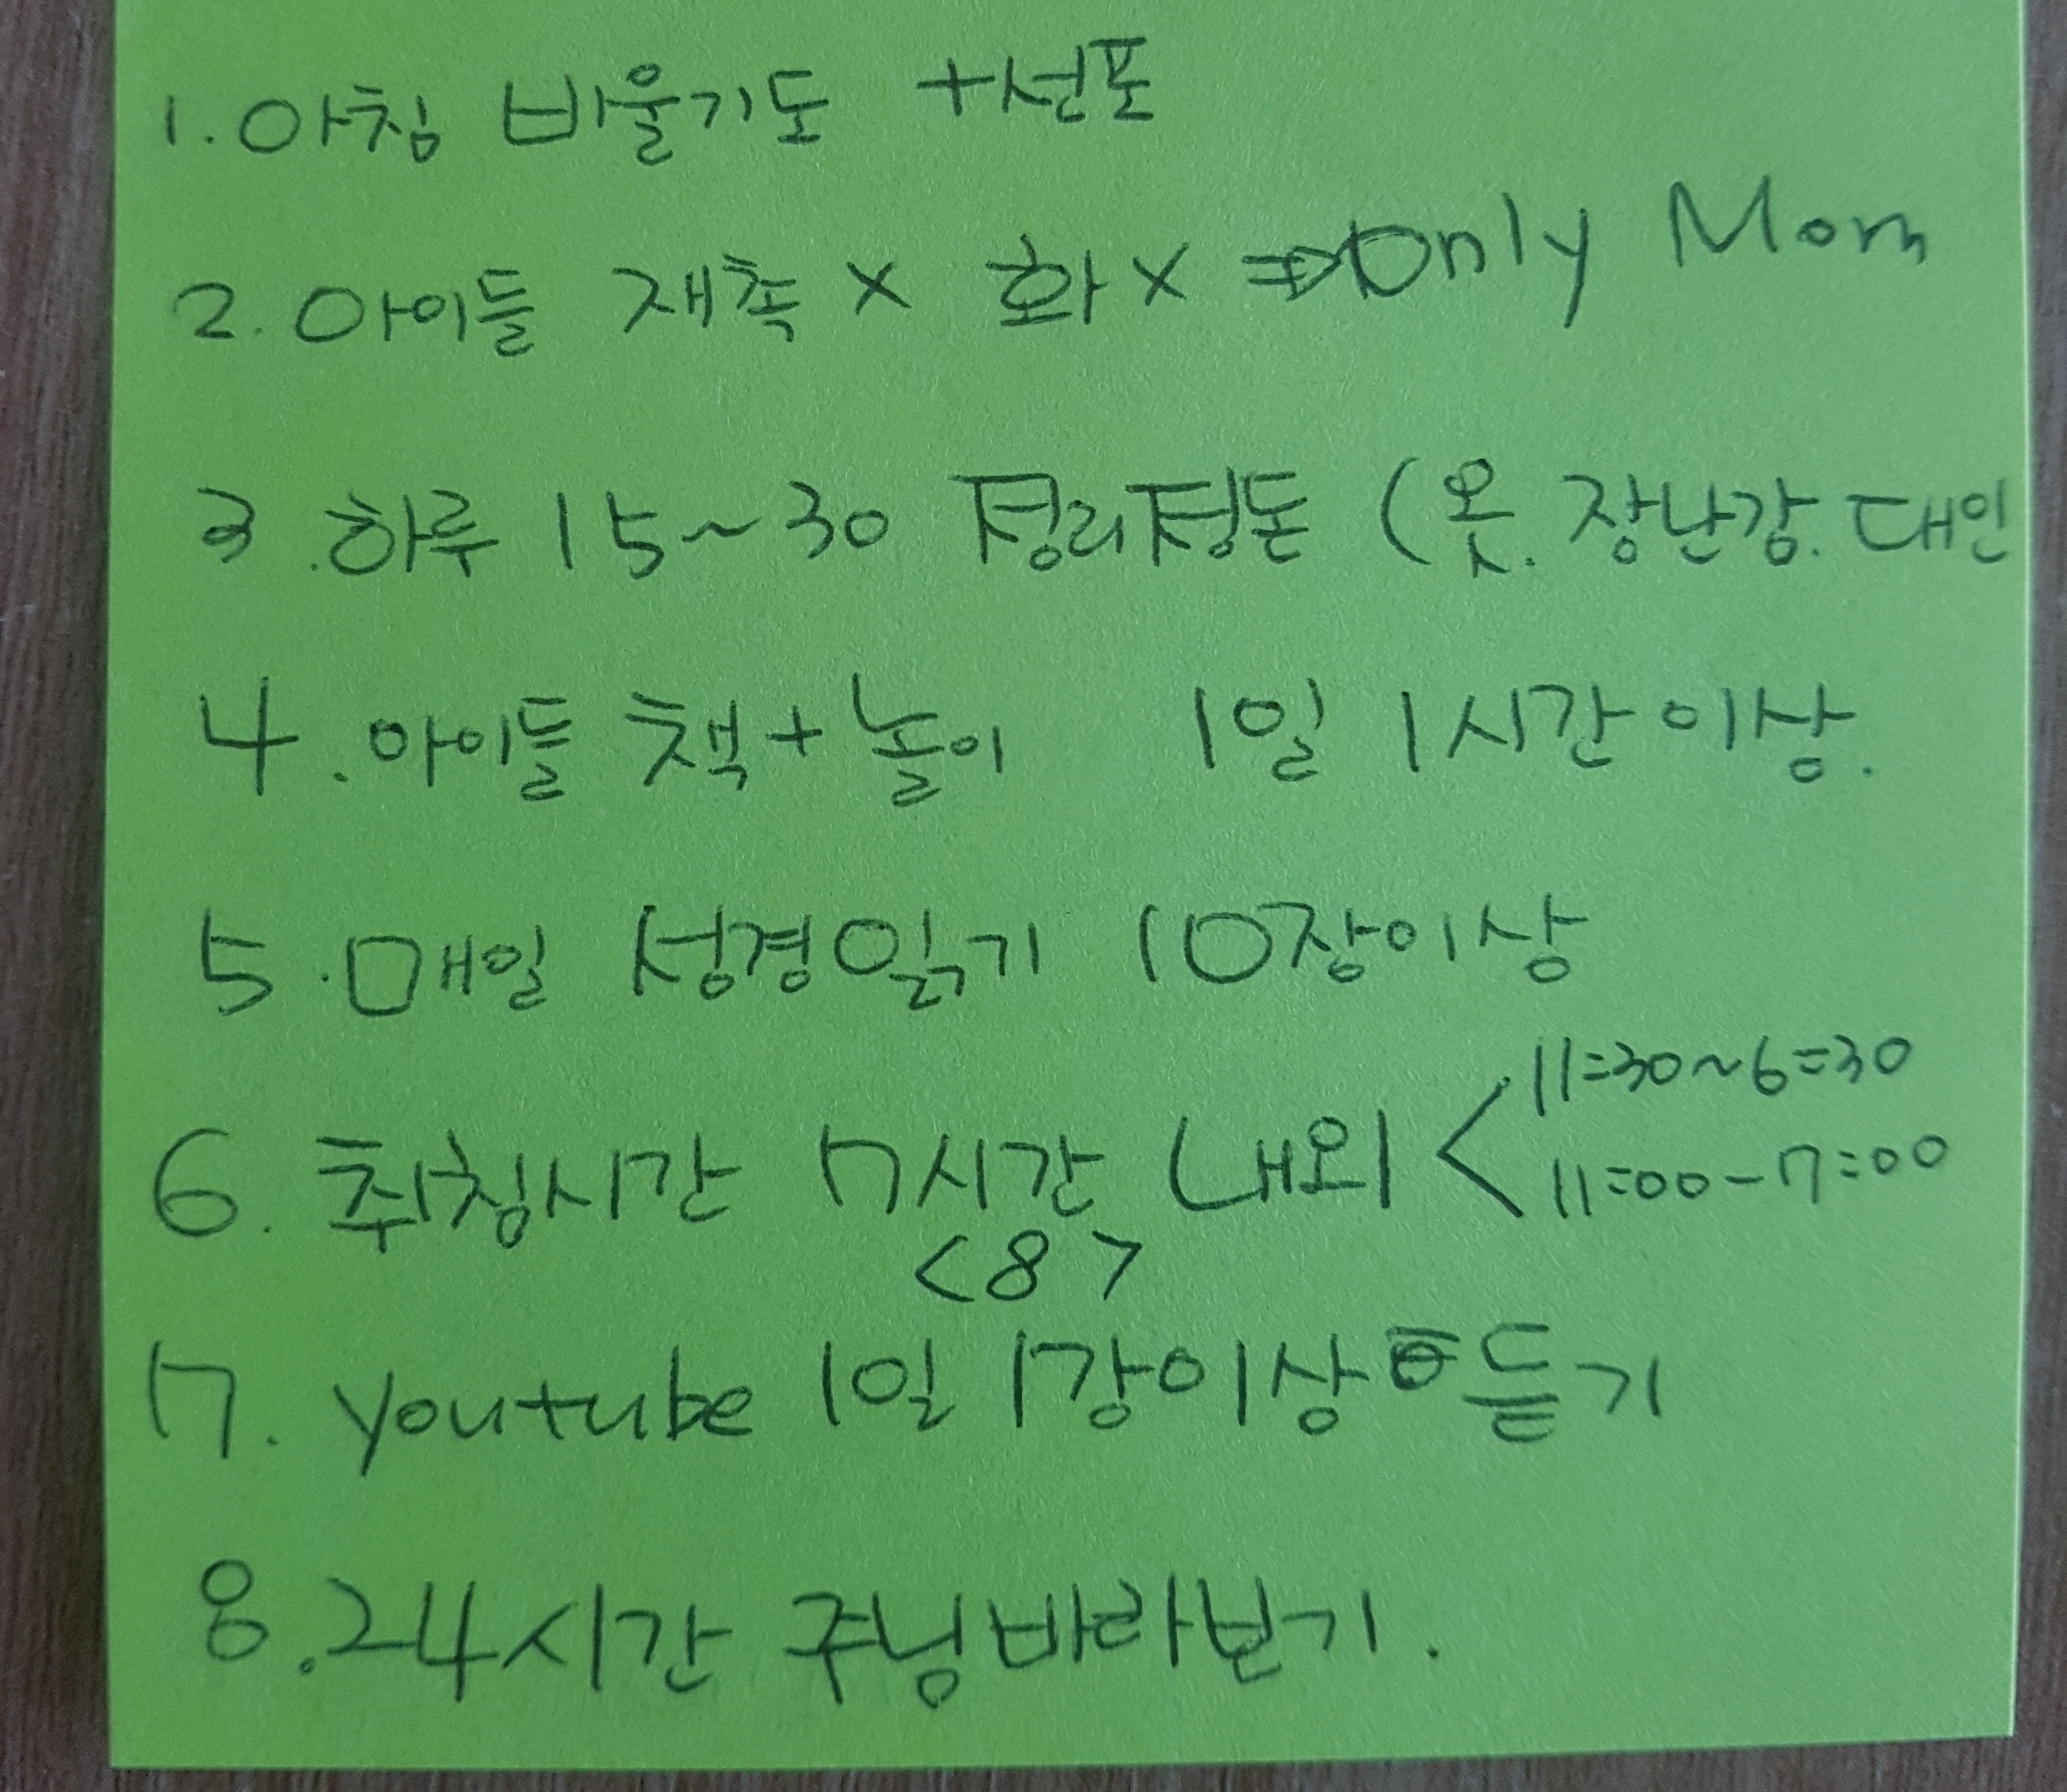 1. 아침 바울기도 +선포
2. 아이들 재촉 X 화 X ⇒ Only Mom
3. 하루 15~30 정리정돈 (옷. 장난감. 대인
4. 아이들 책+놀이 1일 1시간이상.
5. 매일 성경읽기 10장이상
6. 취침시간 7시간 내외 < 11=30~6=30
11=00-7=00
<8>
7. youtube 1일 1강이상 듣기
8. 24시간 주님바라보기.